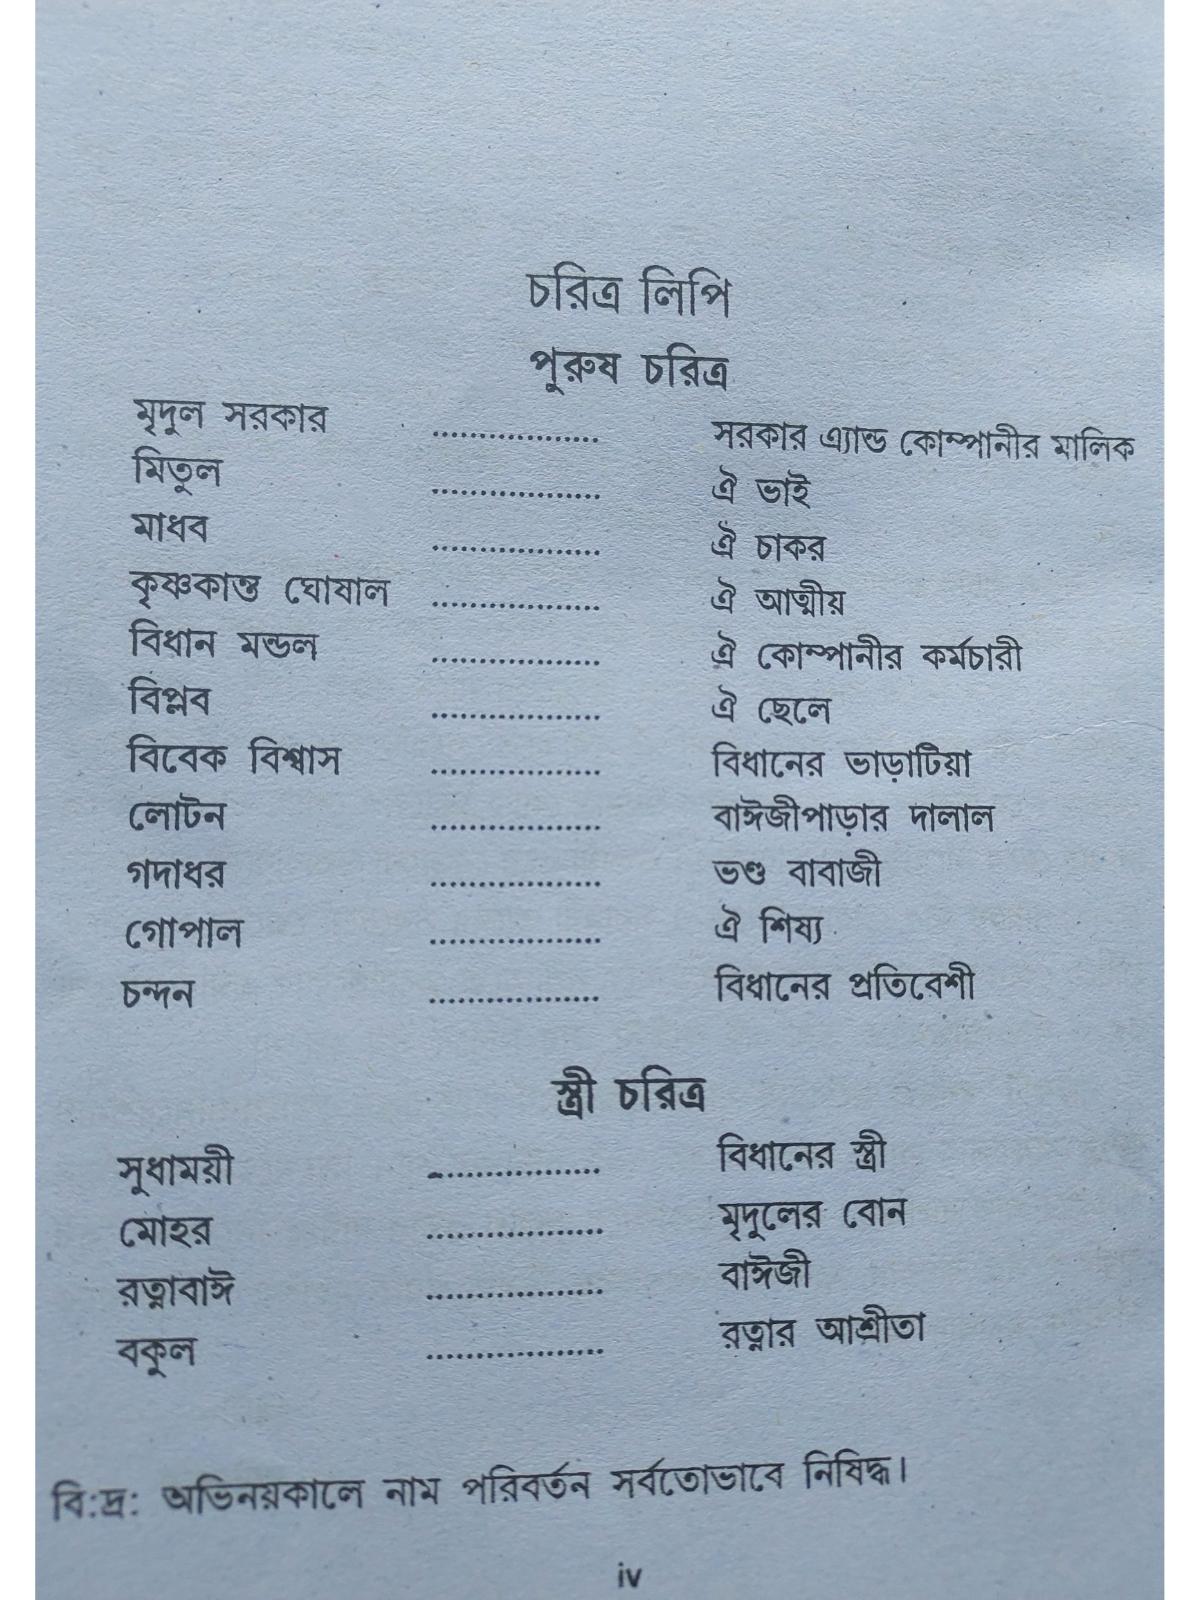 চরিত্র লিপি
পুরুষ চরিত্র
মৃদুল সরকার .................. সরকার এ্যান্ড কোম্পানীর মালিক
মিতুল .................. ঐ ভাই
মাধব .................. ঐ চাকর
কৃষ্ণকান্ত ঘোষাল .................. ঐ আত্মীয়
বিধান মন্ডল .................. ঐ কোম্পানীর কর্মচারী
বিপ্লব .................. ঐ ছেলে
বিবেক বিশ্বাস .................. বিধানের ভাড়াটিয়া
লোটন .................. বাঈজীপাড়ার দালাল
গদাধর .................. ভণ্ড বাবাজী
গোপাল .................. ঐ শিষ্য
চন্দন .................. বিধানের প্রতিবেশী
স্ত্রী চরিত্র
সুধাময়ী .................. বিধানের স্ত্রী
মোহর .................. মৃদুলের বোন
রত্নাবাঈ .................. বাঈজী
বকুল .................. রত্নার আশ্রীতা
বি:দ্র: অভিনয়কালে নাম পরিবর্তন সর্বতোভাবে নিষিদ্ধ।
iv